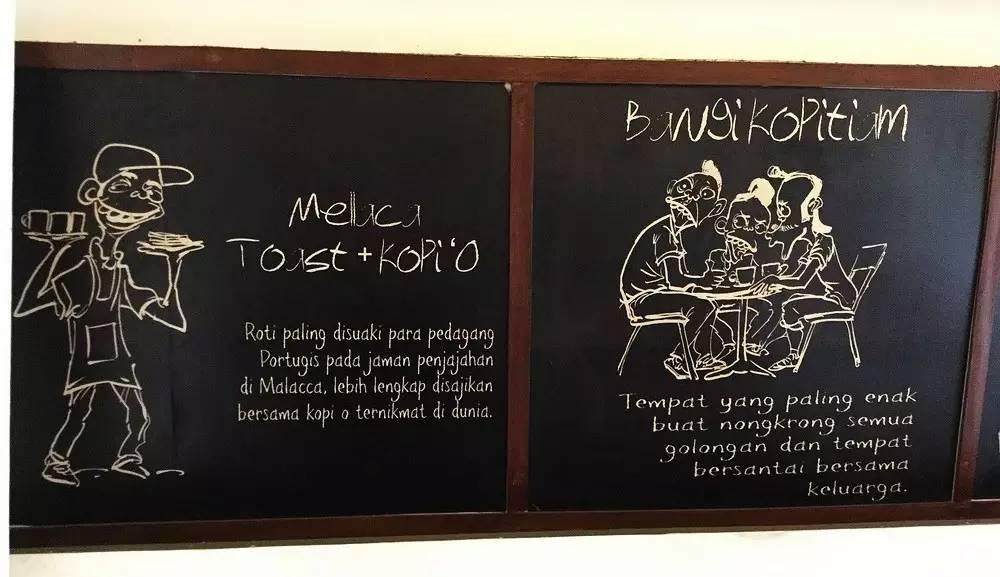 Melaca
Toast + Kopi'O
Roti paling disuaki para pedagang
Portugis pada jaman penjajahan
di Malacca, lebih lengkap disajikan
bersama kopi o ternikmat di dunia.
Bangi Kopitiam
Tempat yang paling enak
buat nongkrong semua
golongan dan tempat
bersantai bersama
keluarga.